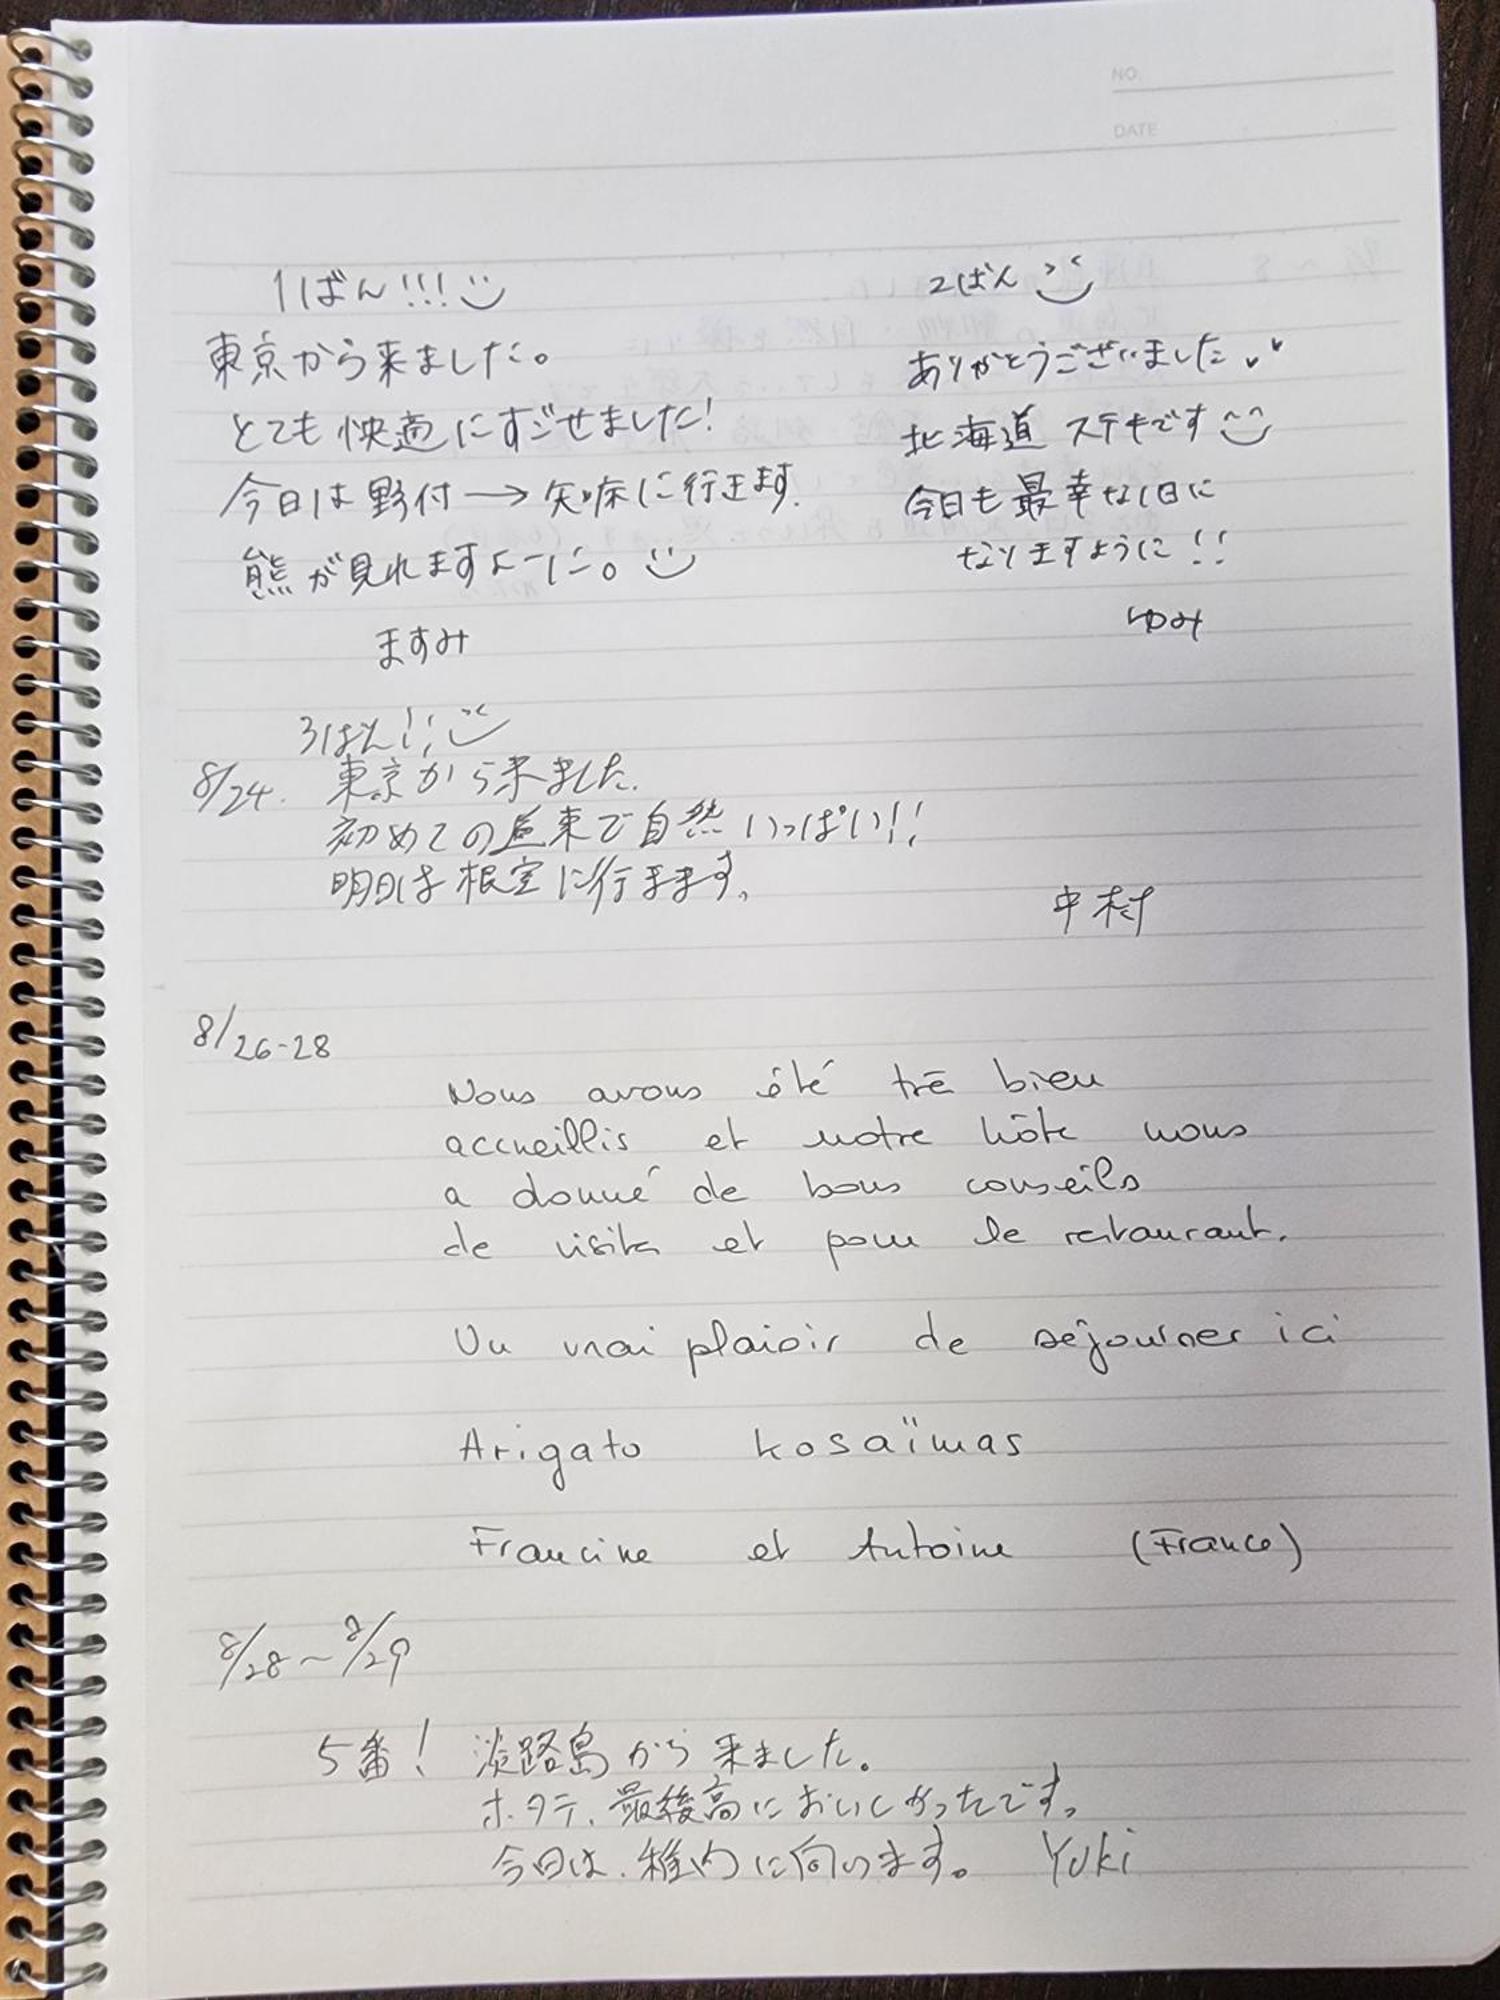 NO.
DATE
1ばん!!!
東京から来ました。
とても快適にすごせました!
今日は野付→知床に行きます.
熊が見れますよーに。
ますみ
2ばん
ありがとうございました
北海道 ステキです
今日も最幸な1日に
なりますように!!
ゆみ
3ばん!!
8/24. 東京から来ました.
初めての道東で自然いっぱい!!
明日は根室に行きます。
中村
8/26-28
Nous avons été trē bien
accueillis et notre hôte nous
a donné de bons conseils
de visites et pour le restaurant.
Un vrai plaisir de séjourner ici
Arigato kosaïmas
Francine et Antoine (France)
8/28~8/29
5番! 淡路島から来ました。
ホタテ、最後高においしかったです。
今日は、稚内に向います。 Yuki